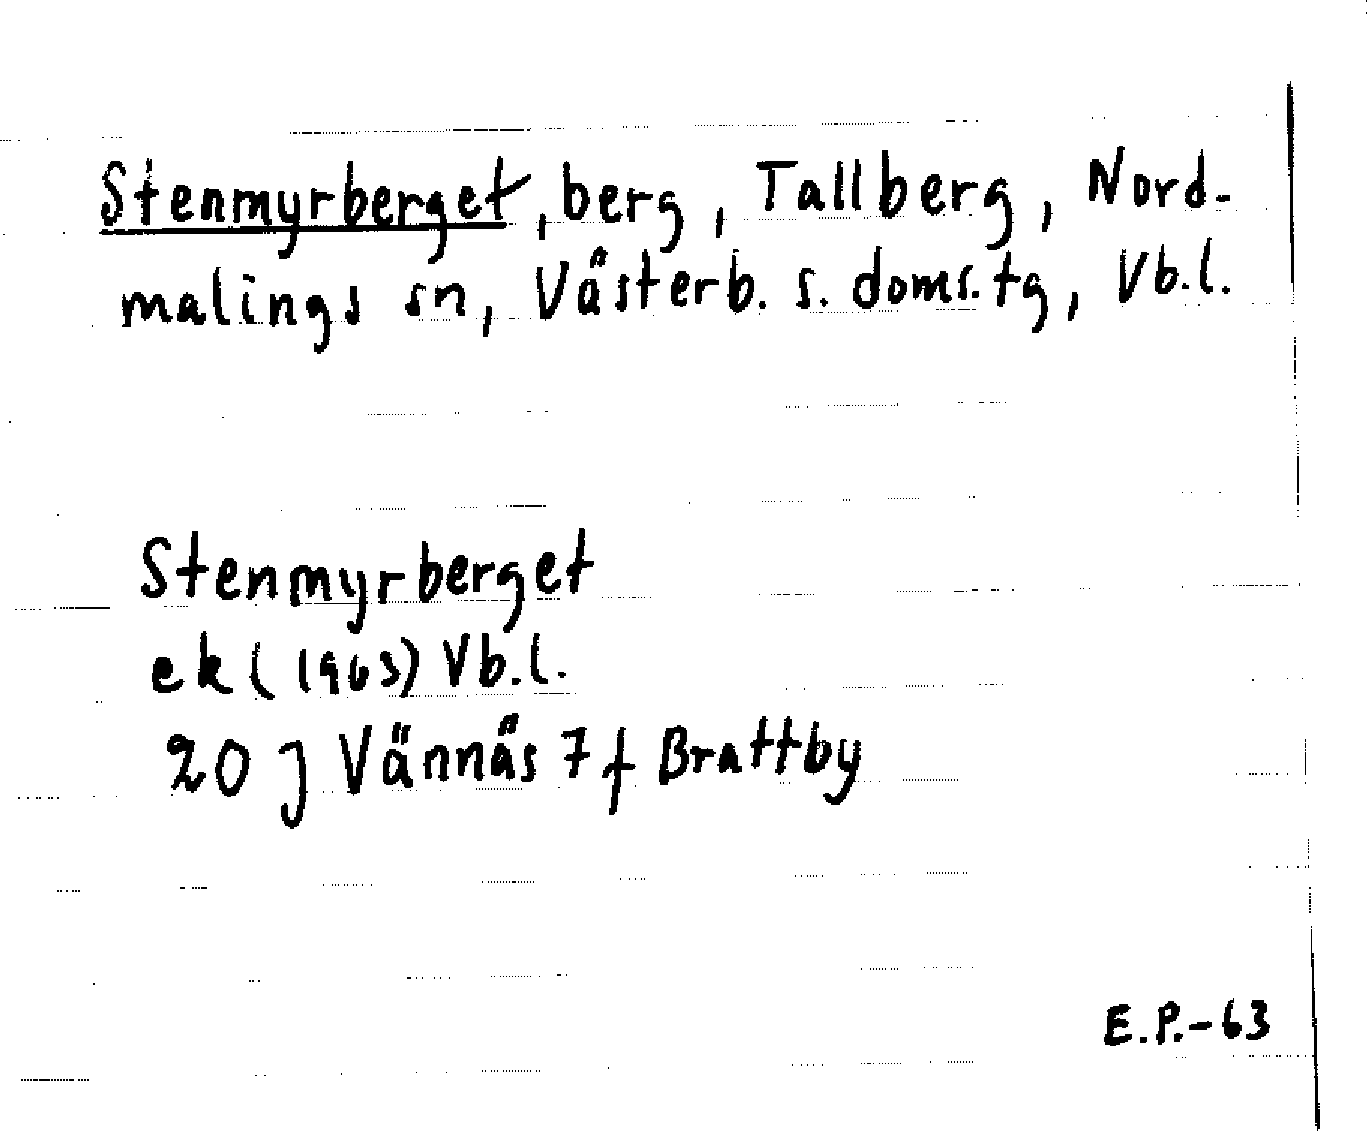 Stenmyrberget, berg, Tallberg, Nord-
malings sn, Västerb. s. doms.tg, Vb.l.
Stenmyrberget
ek (1963) Vb.l.
20 J Vännäs 7 f Brattby
E.P.-63